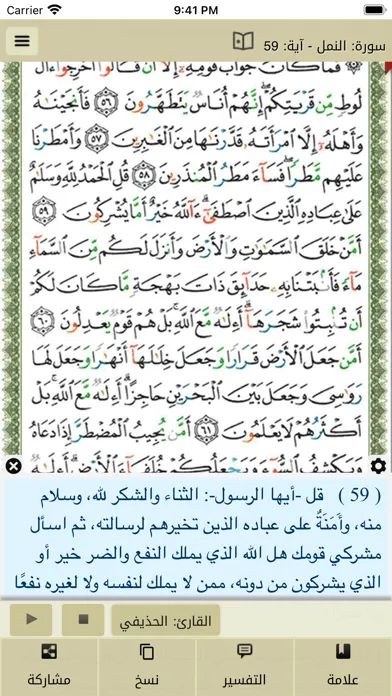 Carrier 9:41 PM
سورة: النمل - آية: 59
۞ فَمَا كَانَ جَوَابَ قَوْمِهِ إِلَّا أَن قَالُوا أَخْرِجُوا ءَالَ
لُوطٍ مِّن قَرْيَتِكُمْ إِنَّهُمْ أُنَاسٌ يَتَطَهَّرُونَ ٥٦ فَأَنجَيْنَاهُ
وَأَهْلَهُ إِلَّا امْرَأَتَهُ قَدَّرْنَاهَا مِنَ الْغَابِرِينَ ٥٧ وَأَمْطَرْنَا
عَلَيْهِم مَّطَرًا فَسَاءَ مَطَرُ الْمُنذَرِينَ ٥٨ قُلِ الْحَمْدُ لِلَّهِ وَسَلَامٌ
عَلَىٰ عِبَادِهِ الَّذِينَ اصْطَفَىٰ ءَاللَّهُ خَيْرٌ أَمَّا يُشْرِكُونَ ٥٩
أَمَّنْ خَلَقَ السَّمَاوَاتِ وَالْأَرْضَ وَأَنزَلَ لَكُم مِّنَ السَّمَاءِ
مَاءً فَأَنبَتْنَا بِهِ حَدَائِقَ ذَاتَ بَهْجَةٍ مَّا كَانَ لَكُمْ
أَن تُنبِتُوا شَجَرَهَا أَءِلَٰهٌ مَّعَ اللَّهِ بَلْ هُمْ قَوْمٌ يَعْدِلُونَ ٦٠
أَمَّن جَعَلَ الْأَرْضَ قَرَارًا وَجَعَلَ خِلَالَهَا أَنْهَارًا وَجَعَلَ لَهَا
رَوَاسِيَ وَجَعَلَ بَيْنَ الْبَحْرَيْنِ حَاجِزًا أَءِلَٰهٌ مَّعَ اللَّهِ بَلْ
أَكْثَرُهُمْ لَا يَعْلَمُونَ ٦١ أَمَّن يُجِيبُ الْمُضْطَرَّ إِذَا دَعَاهُ
وَيَكْشِفُ السُّوءَ وَيَجْعَلُكُمْ خُلَفَاءَ الْأَرْضِ أَءِلَٰهٌ
( 59 ) قل -أيها الرسول-: الثناء والشكر لله، وسلام
منه، وأَمَنَةٌ على عباده الذين تخيرهم لرسالته، ثم اسأل
مشركي قومك هل الله الذي يملك النفع والضر خير أو
الذي يشركون من دونه، ممن لا يملك لنفسه ولا لغيره نفعًا
القارئ: الحذيفي
علامة التفسير نسخ مشاركة